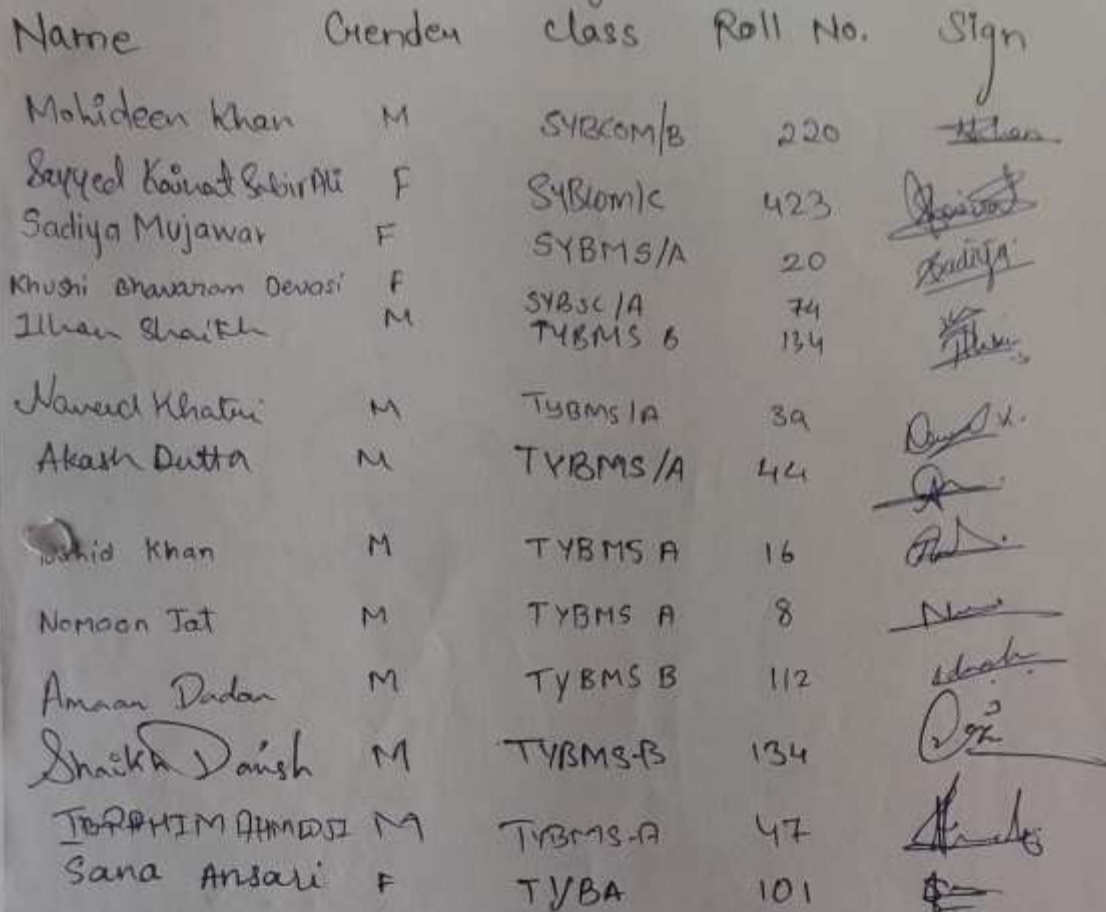 Name Gender class Roll No. Sign
Mohideen Khan M SYBCOM/B 220 Khan
Sayyed Kainat Sabir Ali F SYBcom/c 423 Kainat
Sadiya Mujawar F SYBMS/A 20 Sadiya
Khushi Bhavaram Devasi F SYBSC/A 74
Ilhan Shaikh M TYBMS B 134
Naveed Khatri M TYBMS/A 39
Akash Dutta M TYBMS/A 44
Khan M TYBMS A 16
Nomaan Jat M TYBMS A 8
Amaan Dadan M TYBMS B 112
Shaikh Danish M TYBMS-B 134
IBRAHIM AHMEDJI M TYBMS-A 47
Sana Ansari F TYBA 101